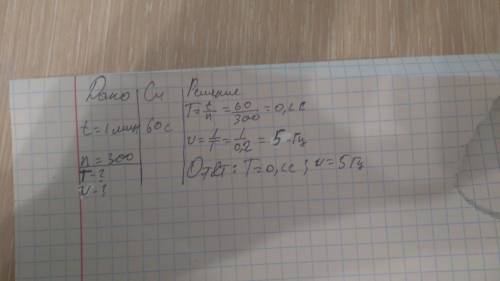 Дано Си Решение
t=1 мин 60 с T=t/n=60/300=0,2 с
n=300 ν=1/T=1/0,2=5 Гц
T-?
ν-? Ответ: T=0,2с; ν=5Гц